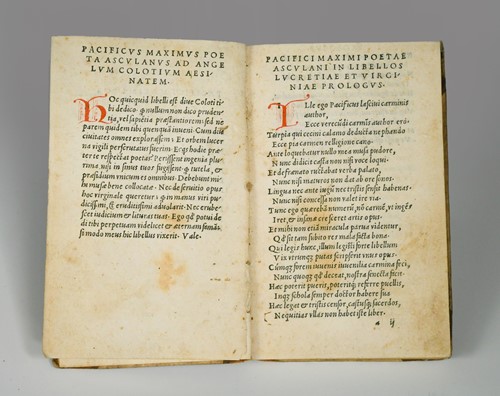 PACIFICVS MAXIMVS POE
TA ASCVLANVS AD ANGE
LVM COLOTIVM AESI
NATEM.
HOc quicquid libelli est diue Coloti ti
bi dedico
uel sapiētia præstantiorem sed ne
parem quidem tibi quem quā inueni. Cum diu
ciuitates omnes explorassem. Et orbem lucer
na uigili perscrutatus fuerim. Ergo hodie præ
terte respectat poetas. Perfugium ingenia plu
rima nisi in sinus tuos tutela, &
præsidium unicum es omnibus. Debes
musæ bene collocatæ. Nec de seruitio opus
hoc uirginale queretur
dicissimi, & eruditissimi aduolarit. Nec erube
scet iudicium & lituras tuas. Ego quod potui de
di tibi perpetuam uidelicet & æternam famā
si modo meus hic libellus uixerit. Vale.
PACIFICI MAXIMI POETAE
ASCVLANI IN LIBELLOS
LVCRETIAE ET VIRGI
NIAE PROLOGVS.
ILle ego Pacificus lasciui carminis
author,
Ecce uerecūdi carmīs author ero
Turpia qui cecini calamo deducta nephando
Ecce pia carmen relligione cano
Ante loquebatur nullo mea musa pudore,
Nunc didicit casta non nisi uoce loqui
Et defranato ructabat uerba palato,
Nunc nisi maturos non dat ab ore sonos.
Lingua nec ante iugū nec tristis sensit habenas
Nunc nisi concessa non ualet ire uia.
Tunc ego quærebā numerū, nō carmē, ut ingē
Iret, & insanæ cresceret artis opus.
Et mihi non etiā miracula parua uidentur,
Qd sit tam subito res mala facta bona.
Qui legis hunc, illum legisti forte libellum
Vix utrunque putas scripserit unus opus.
Cumque forem iuuenis iuuenilia carmina feci,
Nunc quoque quod deceat, nostra senecta facit.
Hæc poterit pueris, poteritque referre puellis,
Inque schola semper doctor habere sua
Hæc legat & tristis censor, castusque sacerdos,
Nequitias ullas non habet iste liber.
a ij